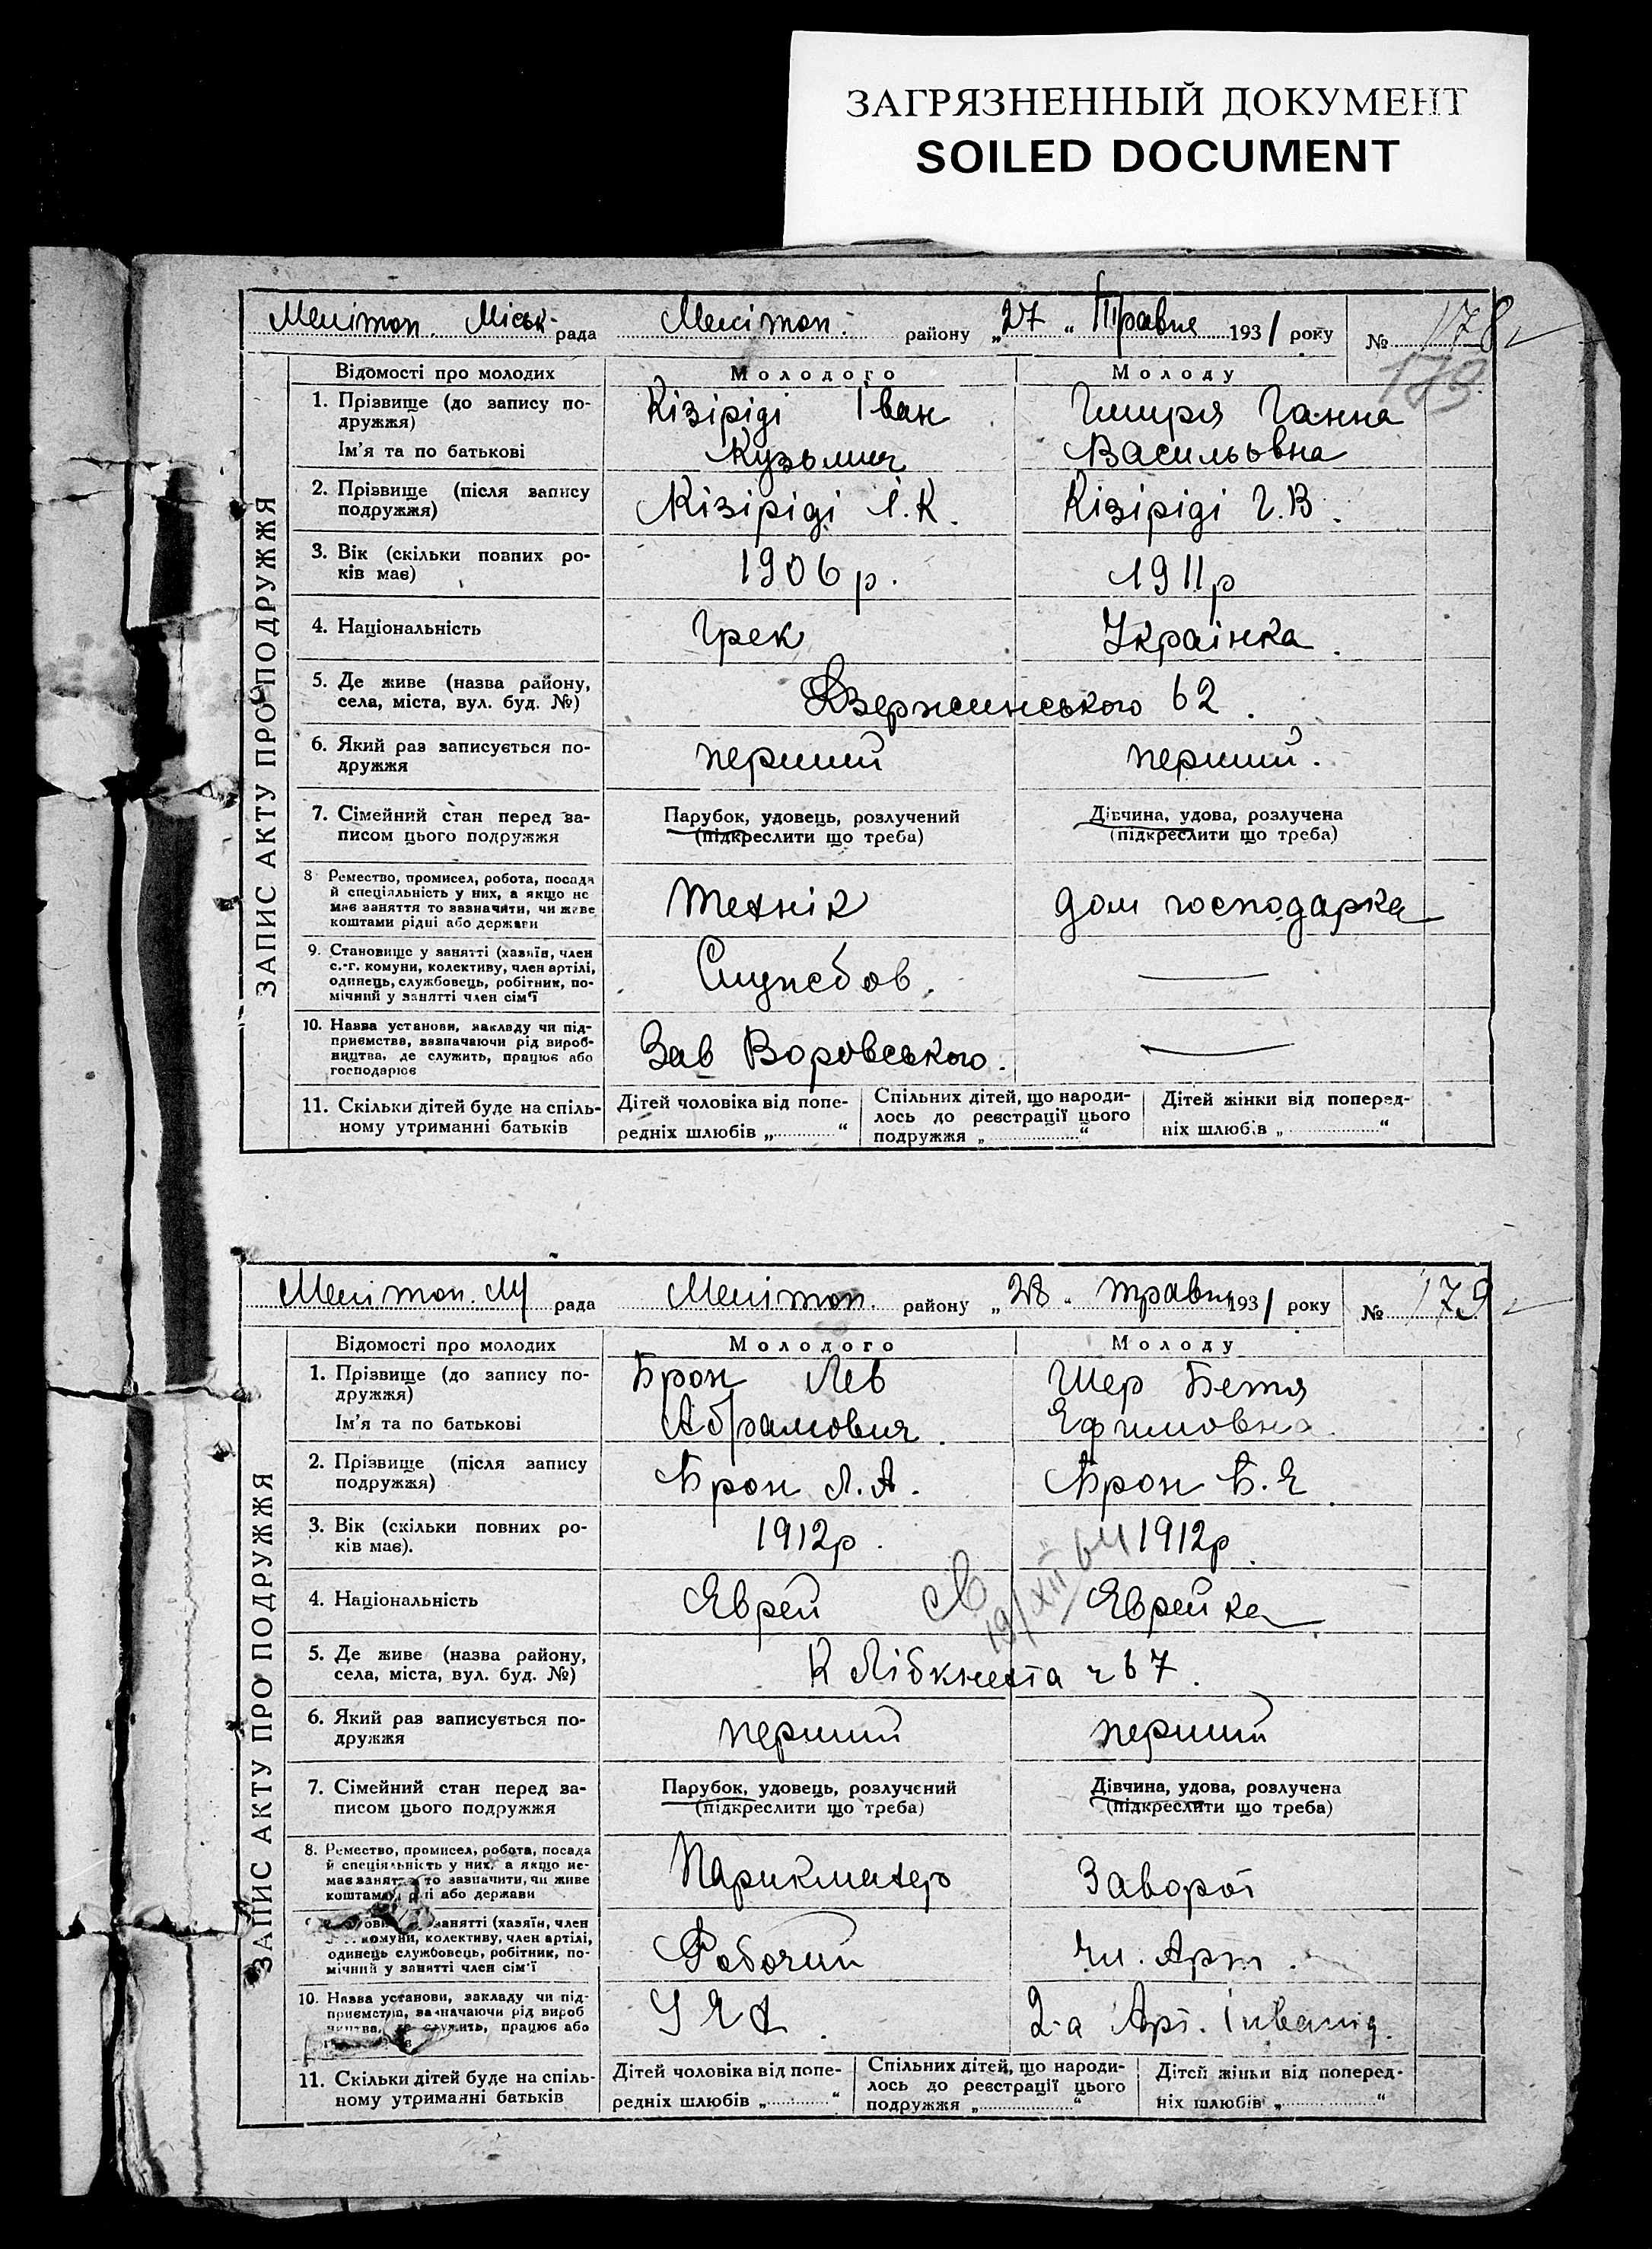 ЗАГРЯЗНЕННЫЙ ДОКУМЕНТ
SOILED DOCUMENT
Мелітоп. Міськ. рада Мелітоп. району „27„ Травня 1931 року № 178
179
ЗАПИС АКТУ ПРО ПОДРУЖЖЯ
Відомості про молодих Молодого Молоду
1. Прізвище (до запису по-
дружжя)
Кізіріді Іван Гииря Ганна
Ім'я та по батькові Кузьмич Васильовна
2. Прізвище (після запису
подружжя)
Кізіріді І.К. Кізіріді Г.В.
3. Вік (скільки повних ро-
ків має)
1906 р. 1911р
4. Національність Грек Українка.
5. Де живе (назва району,
села, міста, вул. буд. №)
Дзержинського 62.
6. Який раз записується по-
дружжя
перший перший.
7. Сімейний стан перед за-
писом цього подружжя
Парубок, удовець, розлучений
(підкреслити що треба)
Дівчина, удова, розлучена
(підкреслити що треба)
8 Ремество, промисел, робота, посада
й спеціяльність у них, а якщо не
має заняття то зазначити, чи живе
коштами рідні або держави
Технік дом господарка
9. Становище у занятті (хазяїн, член
с.-г. комуни, колективу, член артілі,
одинець, службовець, робітник, по-
мічний у занятті член сім'ї
Службов.
10. Назва установи, закладу чи під-
приємства, зазначаючи рід вироб-
ництва, де служить, працює або
господарює
Зав Воровського.
11. Скільки дітей буде на спіль-
ному утриманні батьків
Дітей чоловіка від попе-
редніх шлюбів „ “
Спільних дітей, що народи-
лось до реєстрації цього
подружжя „ “
Дітей жінки від поперед-
ніх шлюбів „ “
Мелітоп. М рада Мелітоп. району „28„ травня 1931 року № 179
ЗАПИС АКТУ ПРО ПОДРУЖЖЯ
Відомості про молодих Молодого Молоду
1. Прізвище (до запису по-
дружжя)
Брон Лев Шер Бетя
Ім'я та по батькові Абрамович. Ефимовна
2. Прізвище (після запису
подружжя)
Брон Л.А. Брон Б.Е
3. Вік (скільки повних ро-
ків має).
1912р. 1912р.
19/XII 64
4. Національність Еврей Еврейка
5. Де живе (назва району,
села, міста, вул. буд. №)
К Лібкнехта ч 67.
6. Який раз записується по-
дружжя
перший перший
7. Сімейний стан перед за-
писом цього подружжя
Парубок, удовець, розлучений
(підкреслити що треба)
Дівчина, удова, розлучена
(підкреслити що треба)
8. Ремество, промисел, робота, посада
й спеціяльність у них, а якщо не-
має то зазначити, чи живе
або держави
Парикмахер Заворот
занятті (хазяїн, член
комуни, колективу, член артілі,
одинець службовець, робітник, по-
мічний у занятті член сім'ї
Рабочий чл. Арт.
10. Назва установи, закладу чи під-
приємства, зазначаючи рід вироб
служить, працює або
2-а Арт. Інвалід.
11. Скільки дітей буде на спіль-
ному утриманні батьків
Дітей чоловіка від попе-
редніх шлюбів „ “
Спільних дітей, що народи-
лось до реєстрації цього
подружжя „ “
Дітей жінки від поперед-
ніх шлюбів „ “